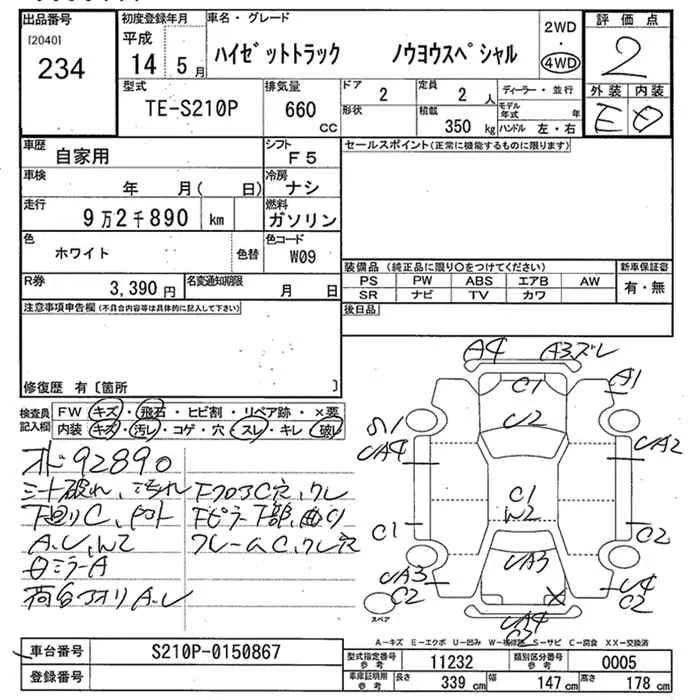 出品番号
[2040]
234
初度登録年月
平成
14 5月
車名・グレード
ハイゼットトラック ノウヨウスペシャル
2WD
・
4WD
評価点
2
外装 内装
E D
型式
TE-S210P
排気量
660
cc
ドア
2
形状
定員
2人
積載
350 kg
ディーラー・並行
モデル年式 年
ハンドル 左・右
車歴
自家用
シフト
F5
車検
年 月( 日)
冷房
ナシ
走行
9万2千890 km
燃料
ガソリン
色
ホワイト
色替
色コード
W09
R券
3,390円
名変通知期限
月 日
セールスポイント(正常に機能するものに限ります)
装備品 (純正品に限り○をつけてください)
新車保証書
PS PW ABS エアB AW
SR ナビ TV カワ
有・無
後日品
注意事項申告欄(不具合内容等は具体的に記入して下さい)
修復歴 有〔箇所 〕
検査員記入欄
FW キズ・飛石・ヒビ割・リペア跡・×要
内装 キズ・汚レ・コゲ・穴・スレ・キレ・破レ
オド92890
シート破れ、汚れ
FフロアC穴、ワレ
下廻りC、
Fピラー下部、曲り
A.U,W2
フレームC,ワレ穴
ミラーA
荷台アオリA.U
A4 A3ズレ
A1
C1
U2
UA4
UA2
C1
C1
W2
C2
UA3
C2
UA3
U4
C2
X
UA4
C2
スペア
A-キズ E-エクボ U-凹み W-補修跡 S-サビ C-腐食 XX-交換済
車台番号
S210P-0150867
登録番号
型式指定番号
参考
11232
類別区分番号
参考
0005
車庫証明用
参考
長さ 339 cm
幅 147 cm
高さ 178 cm